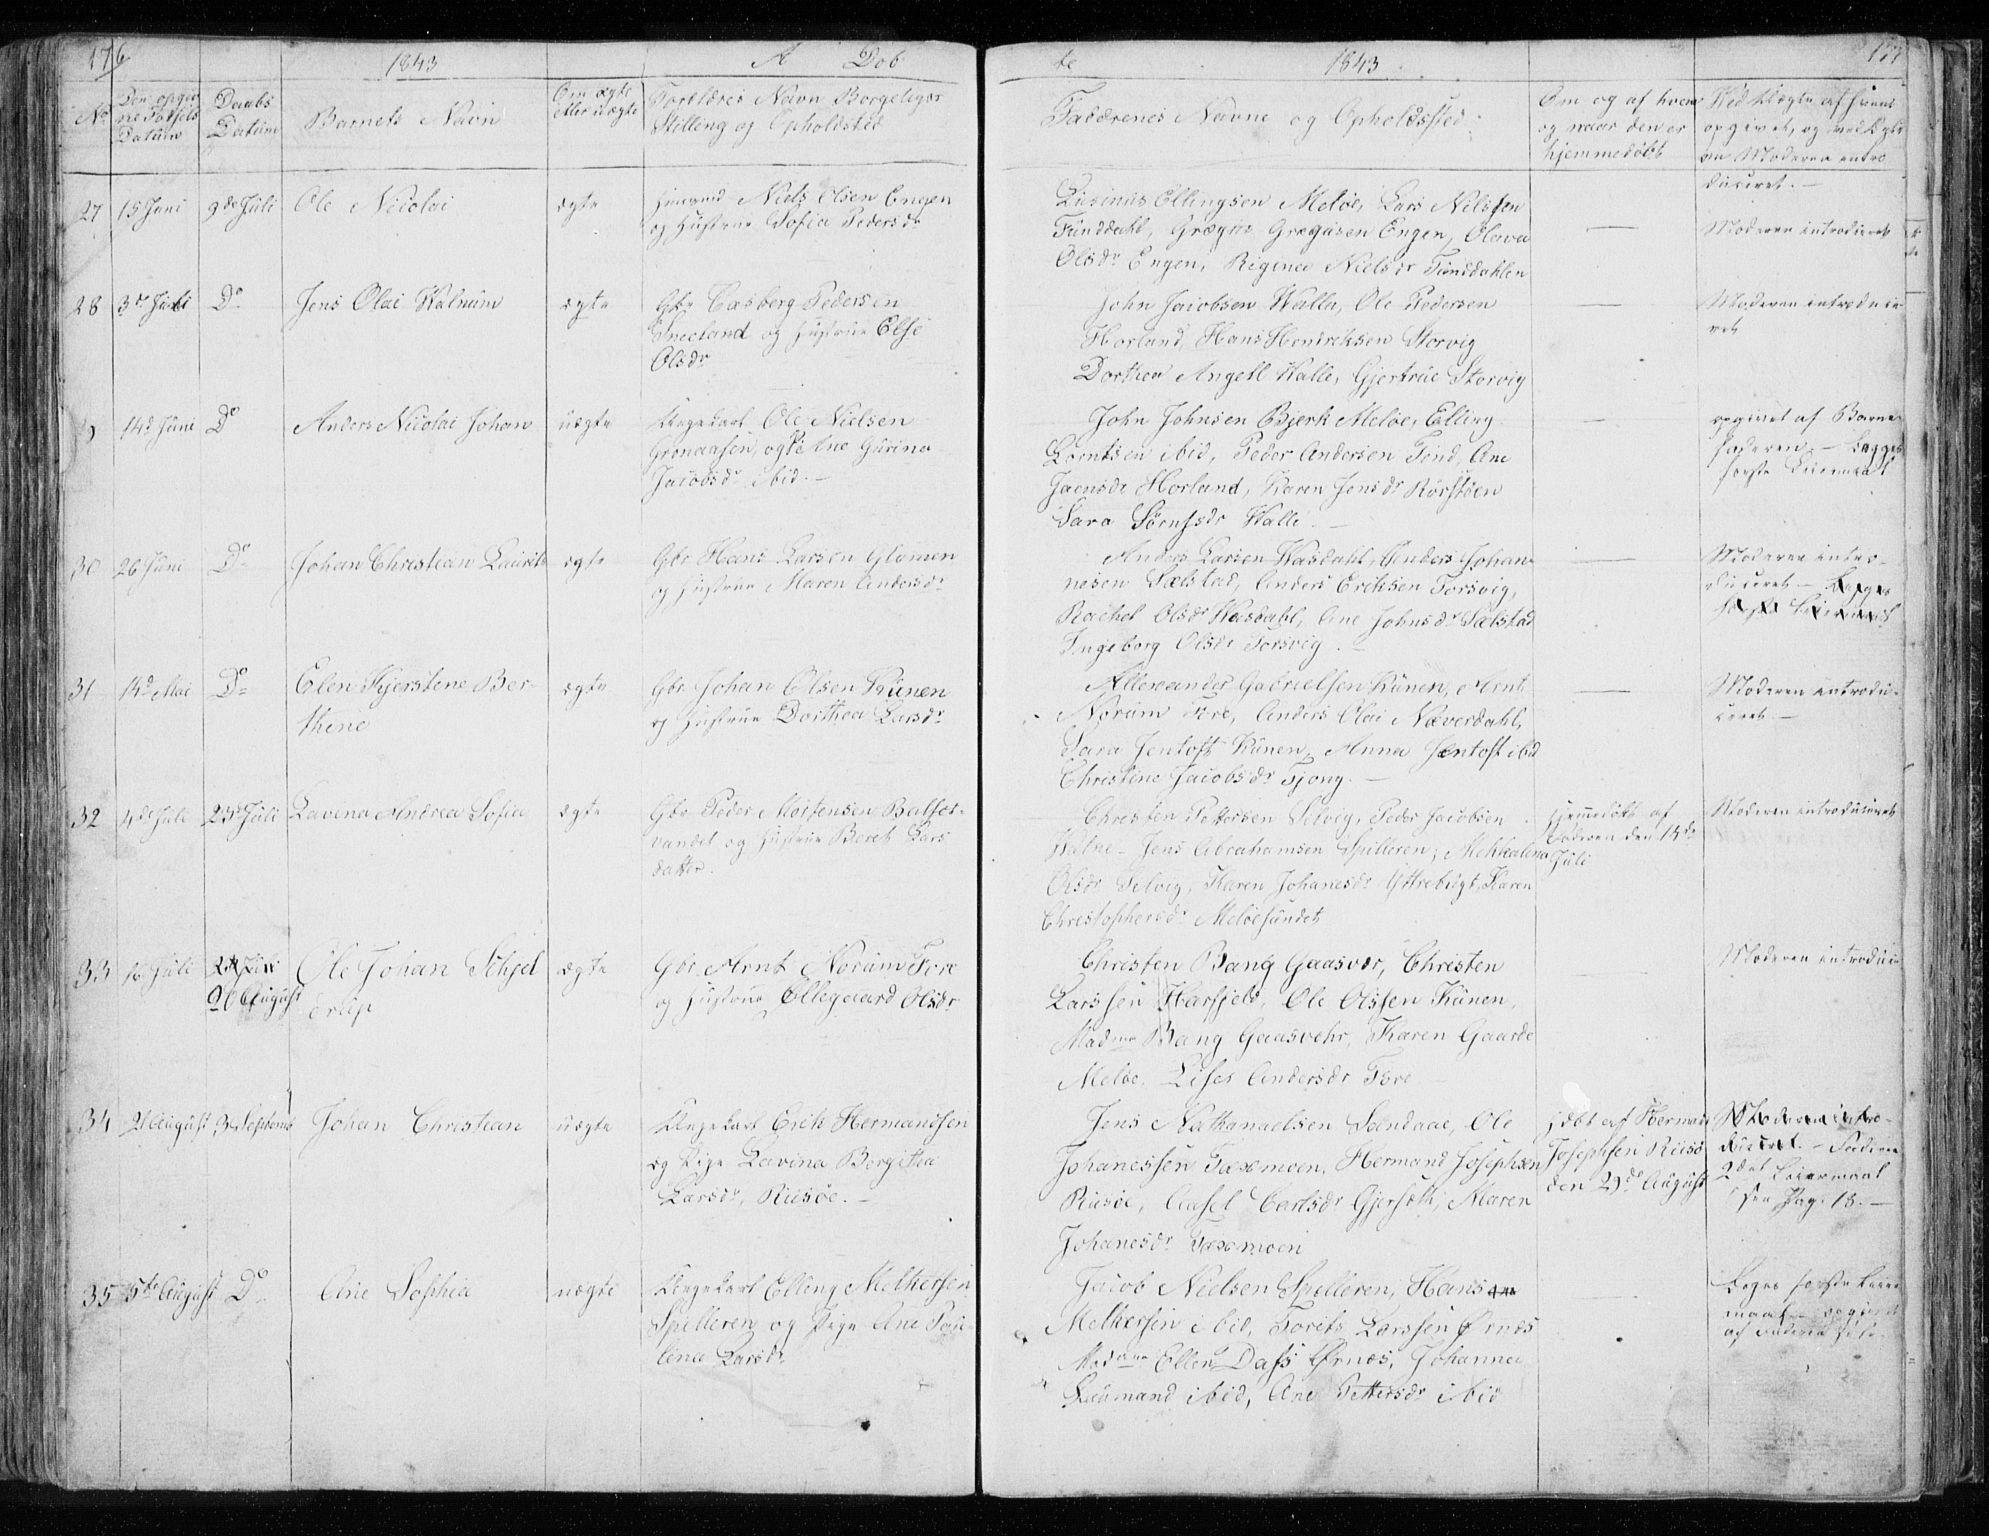 176 1843 A Døb
No Den opgiv
ne Fødsels
Datum
Daabs
Datum
Barnets Navn
Om ægte
eller uægte
Forældres Navn Borgeliger
Stilling og Opholdsted
27 15 Juni 9de Juli Ole Nicolai ægte Huusmd Niels Olsen Engen
og Hustrue Sofia Pedersdr
28 3de Juli Do Jens Olai Walnum ægte Gbr Casberg Pedersen
Sneeland og Hustrue Else
Olsdr
14de Juni Do Anders Nicolai Johan uægte Ungekarl Ole Nielsen
Grønaasen, og Ane Gurina
Jacobsdr ibid. —
30 26 Juni Do Johan Christian Laurits ægte Gbr Hans Larsen Glomen
og Hustrue Maren Andersdr
31 14de Mai Do Elen Kjerstene Ber-
thine ægte Gbr Johan Olsen Kunen
og Hustrue Dorthea Larsdr
32 4de Juli 23de Juli Lavina Andrea Sofia ægte Gbr Peder Mortensen
vandet og Hustrue Beret Lars
datter.
33 16 Juli 20 August Ole Johan Schjel
derup ægte Gbr Arnt Norum Fore
og Hustrue Ellegaard Olsdr
34 21 August 3 Septemb Johan Christian uægte Ungekarl Erik Hermandsen
og Pige Lavina Bergitha
Larsdr, Riisøe. —
35 5te August Do Ane Sophia uægte Ungekarl Elling Melkersen
Spilleren og Pige Ane Pau-
lina Larsdr
te 1843 177
Faddernes Navne og Opholdssted
Om og af hvem
og naar den er
hjemmedøbt
Ved Uægte af hvem
opgivet, og ved Ægte
om Moderen intro
duceret. —
Ellingsen Meløe, Lars Nilssen
Funddahl, Engen, Oleva
Olsdr Engen, Niels dr Funddahlen — Moderen introduceret
John Jacobsen Walla, Ole Pedersen
Horland, Hans Hendriksen Storvig
Dorthea Angell Valle, Gjertrue Storvig — Moderen introduce
ret
John Johnsen Bjerk Meløe, Elling
Lorntsen ibid, Peder Andersen Tend, Ane
Jaensdr Horland, Karen Jensdr Rørstøen
Sara Sørensdr Walle. — — opgivet af Barne-
faderen. — Begges
første Leiermaal
Anders Larsen Wasdahl, Anders Johan-
nesen Sælstad, Anders Eriksen Torsvig,
Rachel Olsdr Wasdahl, Ane Johnsdr Sælstad
Ingeborg Olsdr Torsvig. — Moderen intro-
duceret — Begges
første Leiermaal
Allexander Gabrielsen Kunen, Arnt
Norum Fore, Anders Olai Næverdahl,
Sara Jentoft Kunen, Anna Jentoft ibid
Christine Jacobsdr Tjong. — — Moderen introdu-
ceret —
Christen Pettersen Selvig, Peder Jacobsen
Jens Abrahamsen Spilleren, Mekkelina
Olsdr Selvig, Karen Johanesdr Yttrebugt, Karen
Christophersdr Meløesundet
hjemmedøbt af
Faderen den 14de
Juli
Moderen introduceret
Christen Bang Gaasvær, Christen
Larssen Harfjeld, Ole Olssen Kunen,
Madme Bang Gaasvehr, Karen Gaarde
Meløe, Lises Andersdr Fore — Moderen introduce
Jens Nathanaelsen Sandaae, Ole
Johanessen Faxemoen, Hermand Josephsen
Riisøe, Aasel Carlsdr Gjersæth, Maren
Johanesdr Faxemoen
hjdøbt af Herman
Josephsen Riisø
den 29de August
Moderen intro-
duceret. — Faderens
2det Leiermaal
see Pag. 18. —
Jacob Nielsen Spilleren, Hans
Melkersen ibid, Larssen Ørnæs
Madame Ellen Dass Ørnæs, Johanna
ibid, Ane Pettersdr ibid —
Beges første Leier
maal — opgivet
af Faderen selv